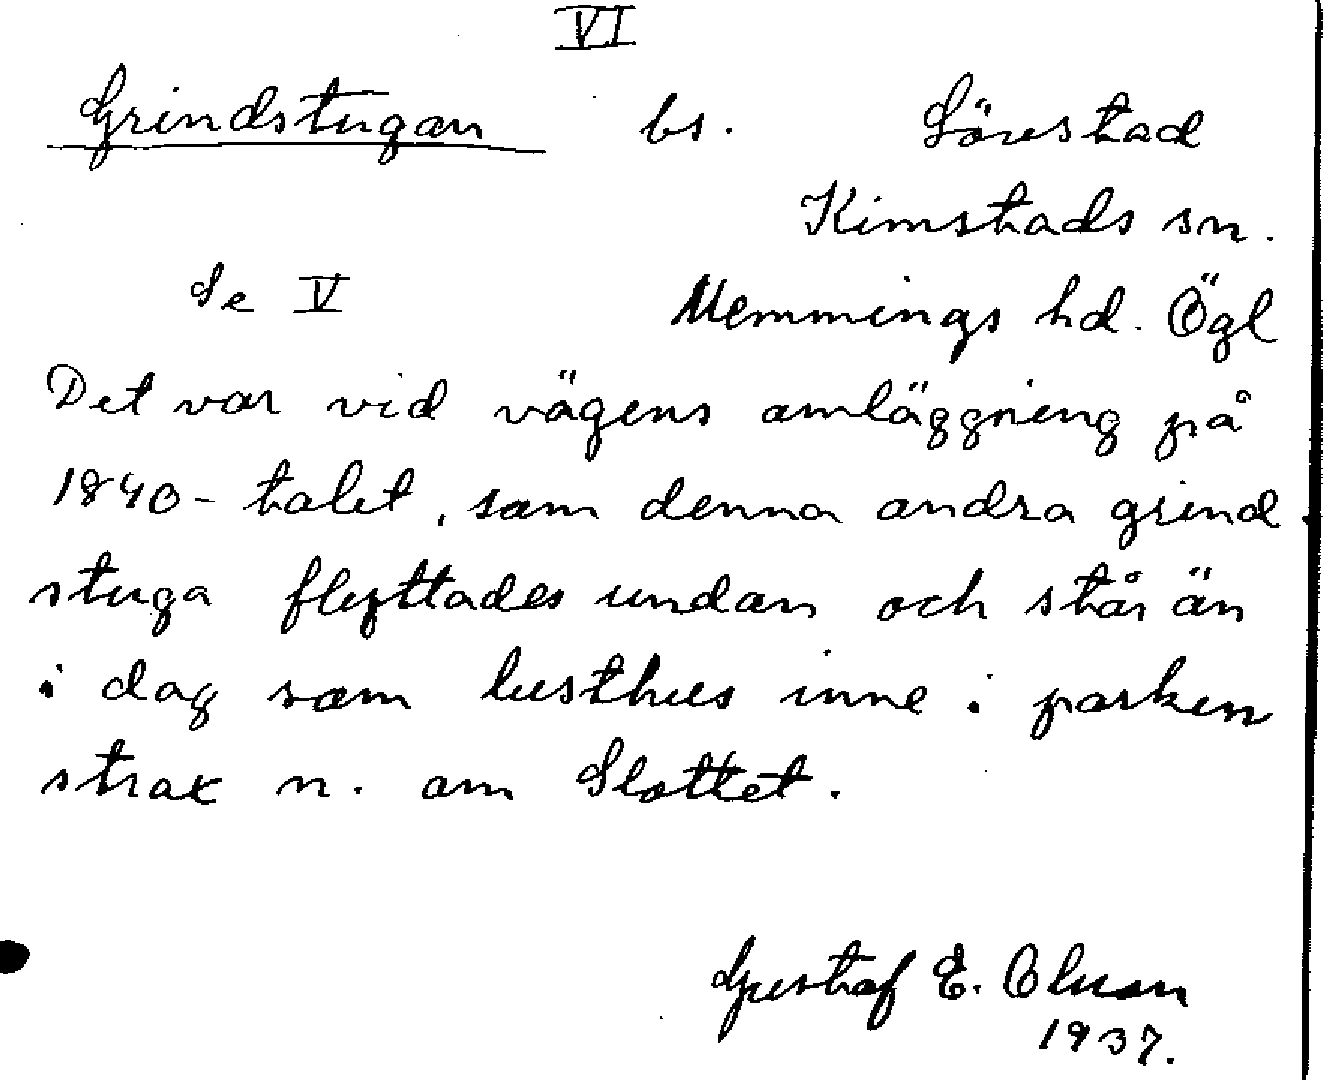 VI
Grindstugan bs. Lövstad
Kimstads sn.
Se V Memmings hd. Ögl
Det var vid vägens omläggning på
1840-talet, som denna andra grind
stuga flyttades undan och står än
i dag som lusthus inne i parken
strax n. om Slottet.
Gustaf E. Olsson
1937.